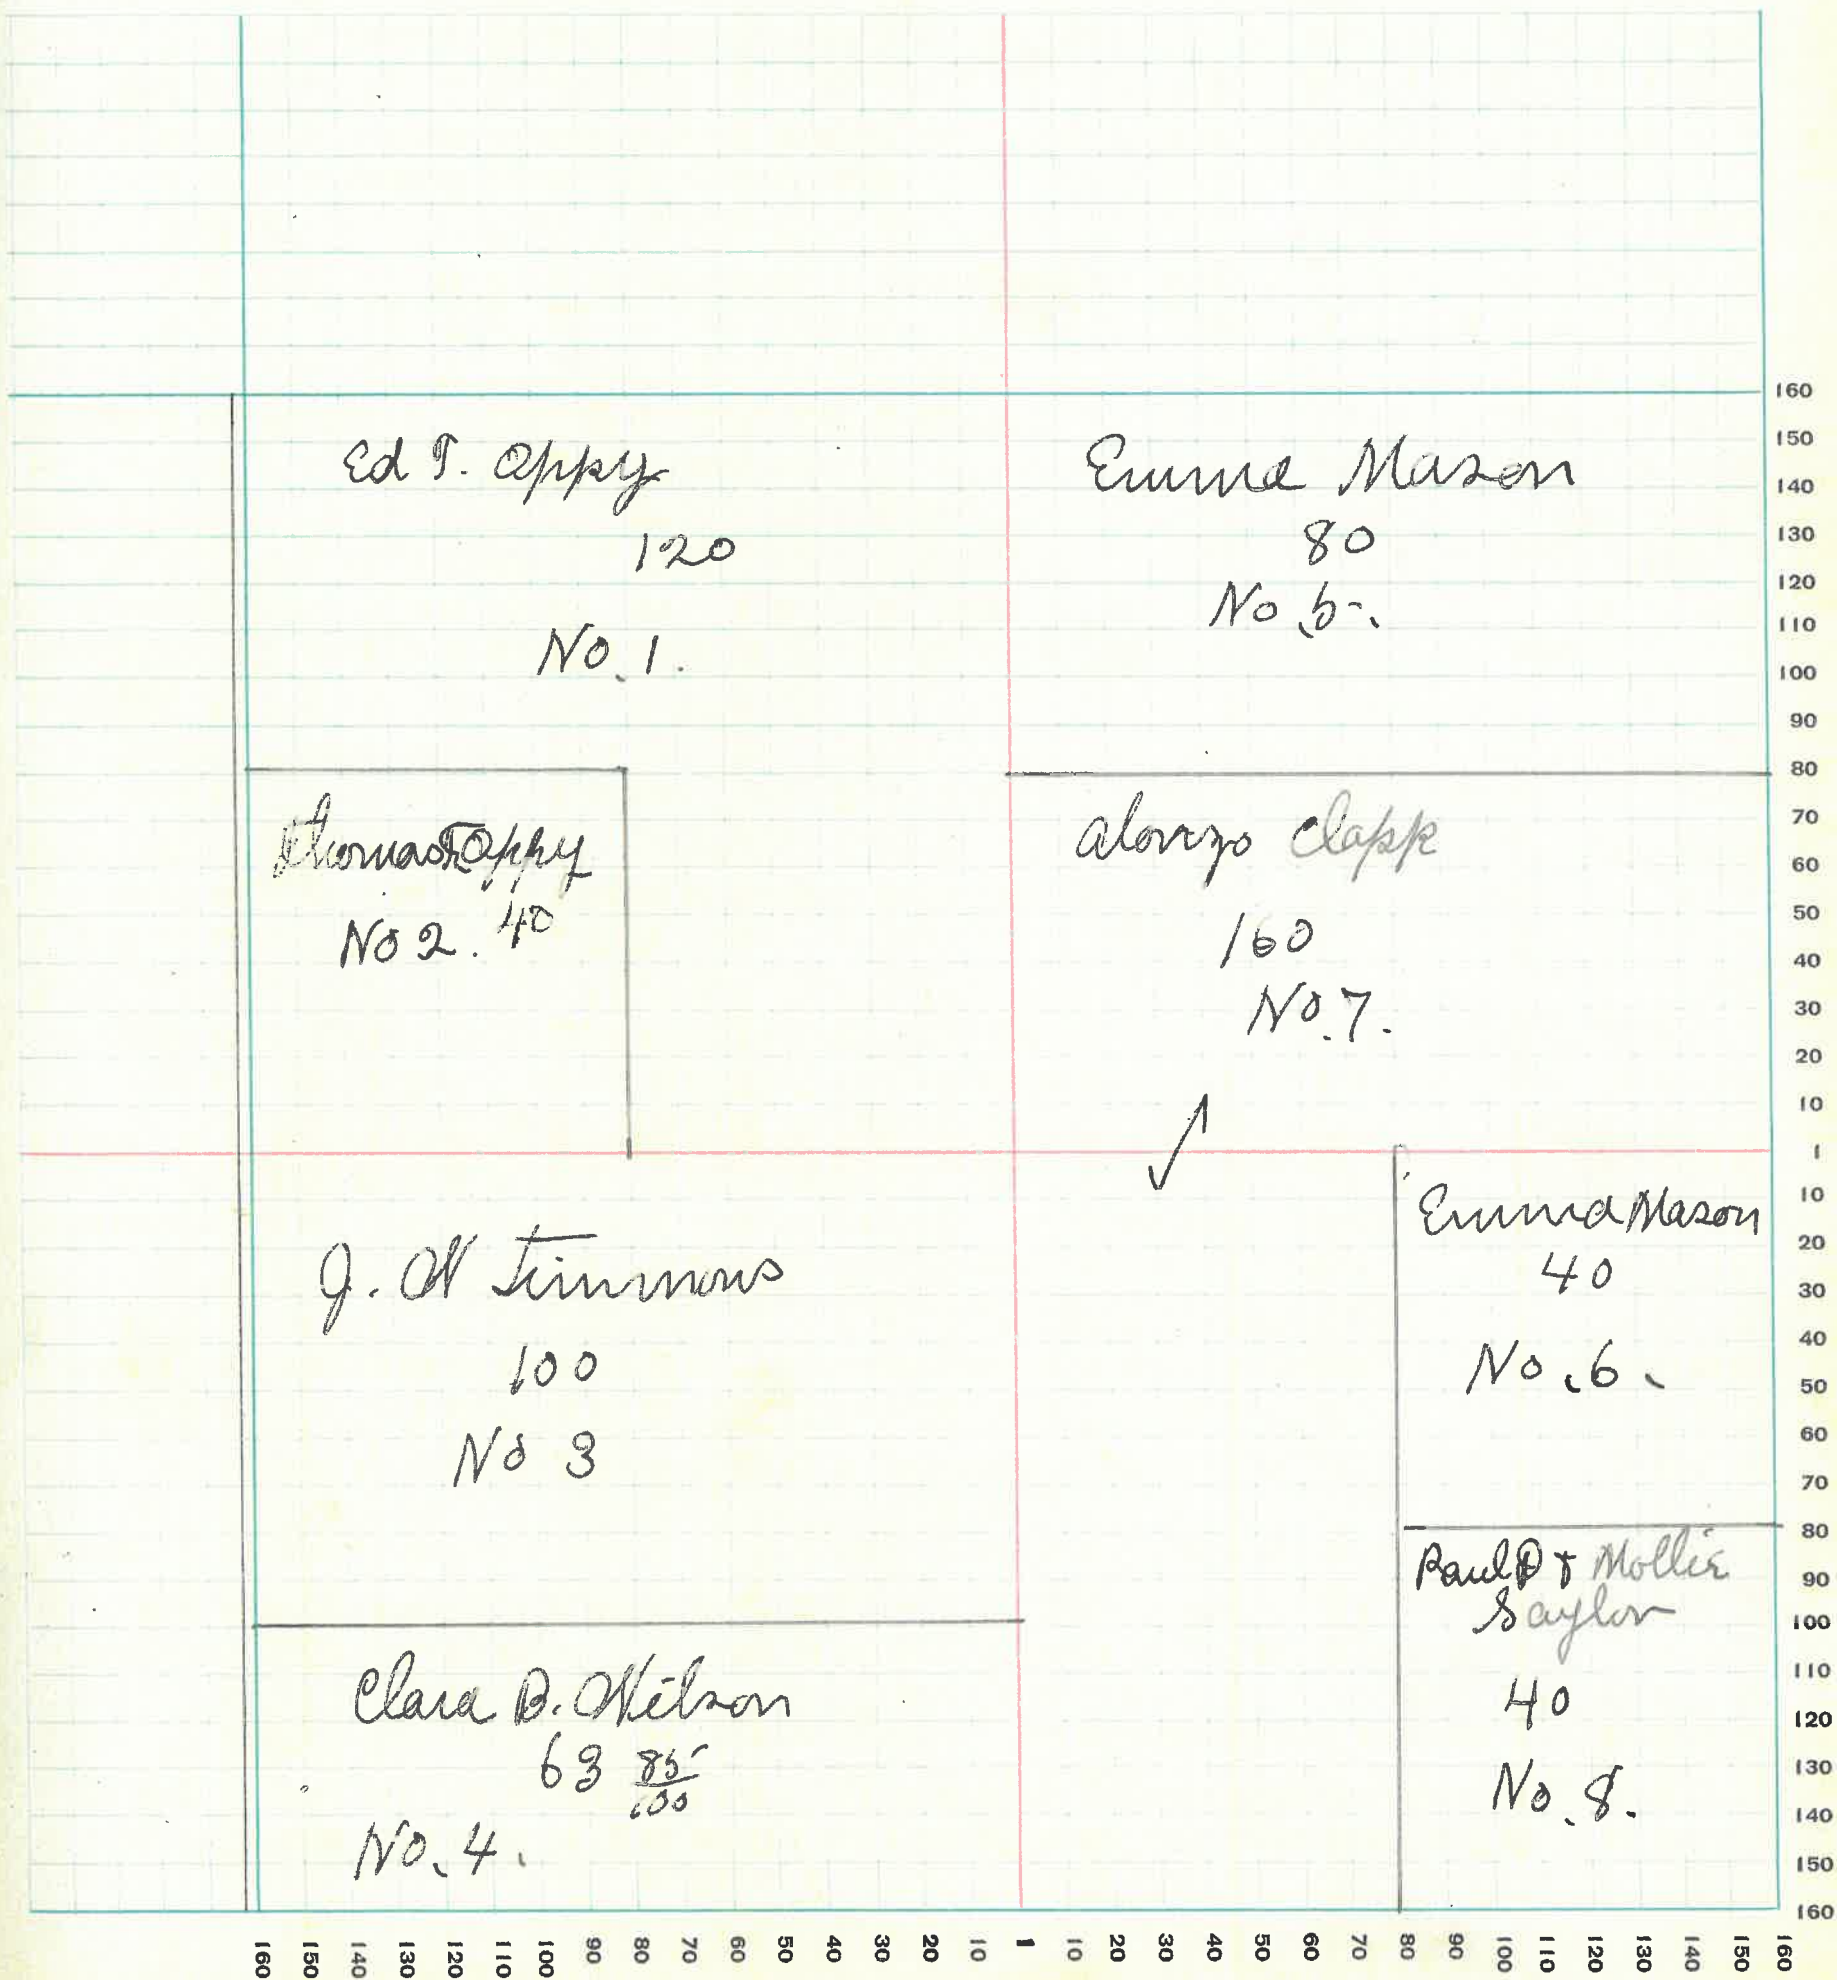 Ed T. Oppy
120
No. 1.
Emma Mason
80
No. 5.
Thomas T. Oppy
No 2. 40
Alonzo Clapp
160
No. 7.
J. W Timmons
100
No 3
Emma Mason
40
No. 6.
Paul D & Mollie
Saylor
40
No. 8.
Clara B. Wilson
63 85/100
No. 4.
160
150
140
130
120
110
100
90
80
70
60
50
40
30
20
10
1
10
20
30
40
50
60
70
80
90
100
110
120
130
140
150
160
160 150 140 130 120 110 100 90 80 70 60 50 40 30 20 10 1 10 20 30 40 50 60 70 80 90 100 110 120 130 140 150 160